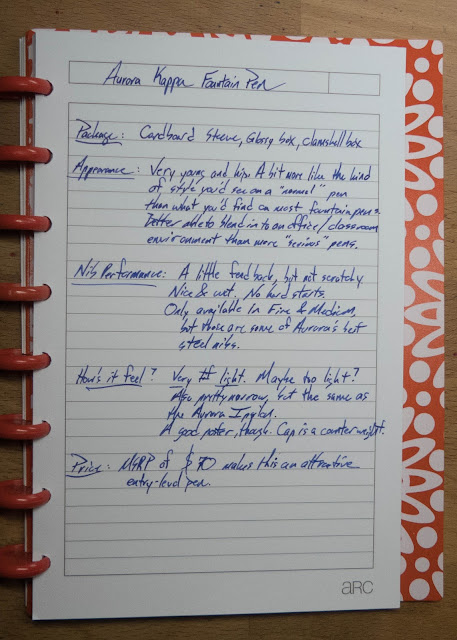 Aurora Kappa Fountain Pen
Package: Cardboard Sleeve, Glossy box, clamshell box
Appearance: Very young and hip. A bit more like the kind
of style you'd see on a "normal" pen
than what you'd find on most fountain pens.
Better able to blend in to an office/classroom
environment than more "serious" pens.
Nib Performance: A little feedback, but not scratchy
Nice & wet. No hard starts.
Only available in Fine & Medium,
but those are some of Aurora's best
steel nibs.
How's it feel? Very light. Maybe too light?
Also pretty narrow, but the same as
the Aurora Ipsilon.
A good poster, though. Cap is a counter weight.
Price: MSRP of $70 makes this an attractive
entry-level pen.
aRC